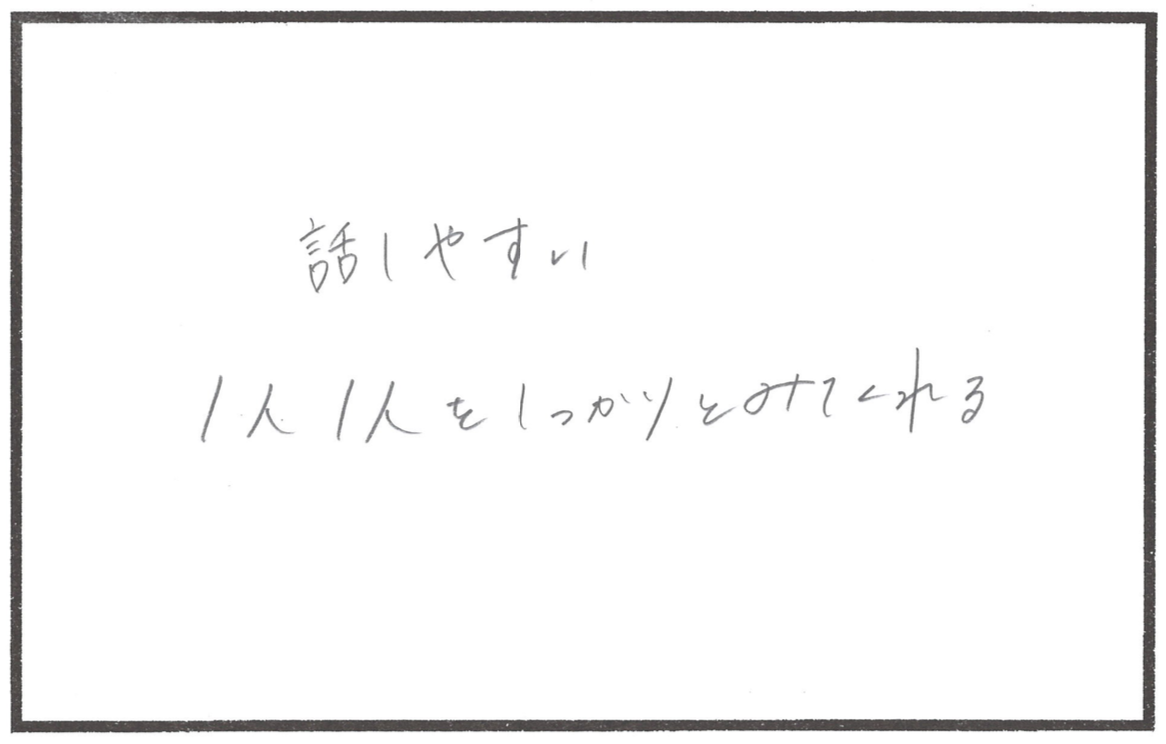 話しやすい
1人1人をしっかりとみてくれる